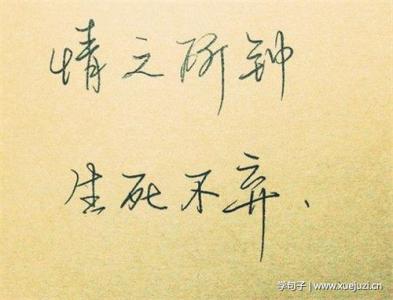 情之所钟
生死不弃、
学句子 | www.xuejuzi.cn